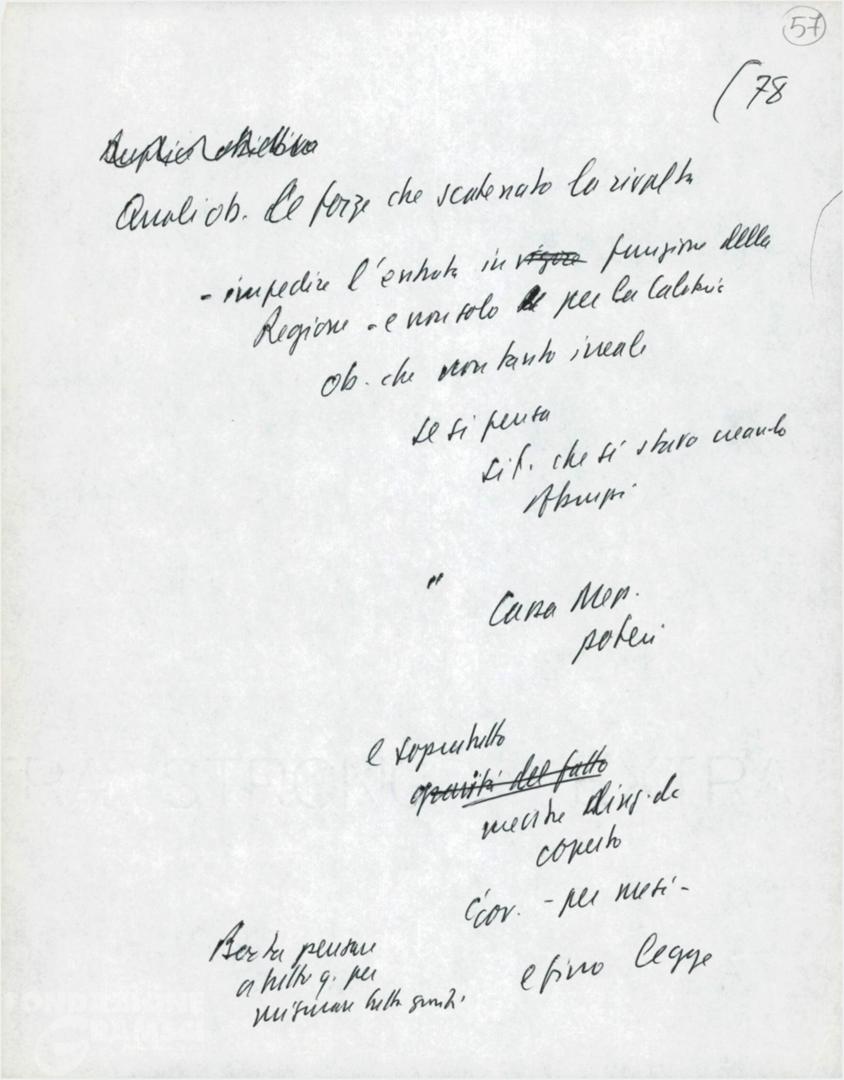 57
(78
Duplice obiettivo
Quali ob. le forze che scatenato la rivolta
- impedire l'entrata in vigore funzione della
Regione - e non solo per la Calabria
ob. che non tanto irreale
se si pensa
sit. che si stava creando
Abruzzi
" Cassa Mezz.
poteri
e soprattutto
del fatto
mentre
coperto
Gov. - per mesi -
Basta pensare e fino legge
a tutto q. per
misurare tutta
FONDAZIONE
GRAMSCI